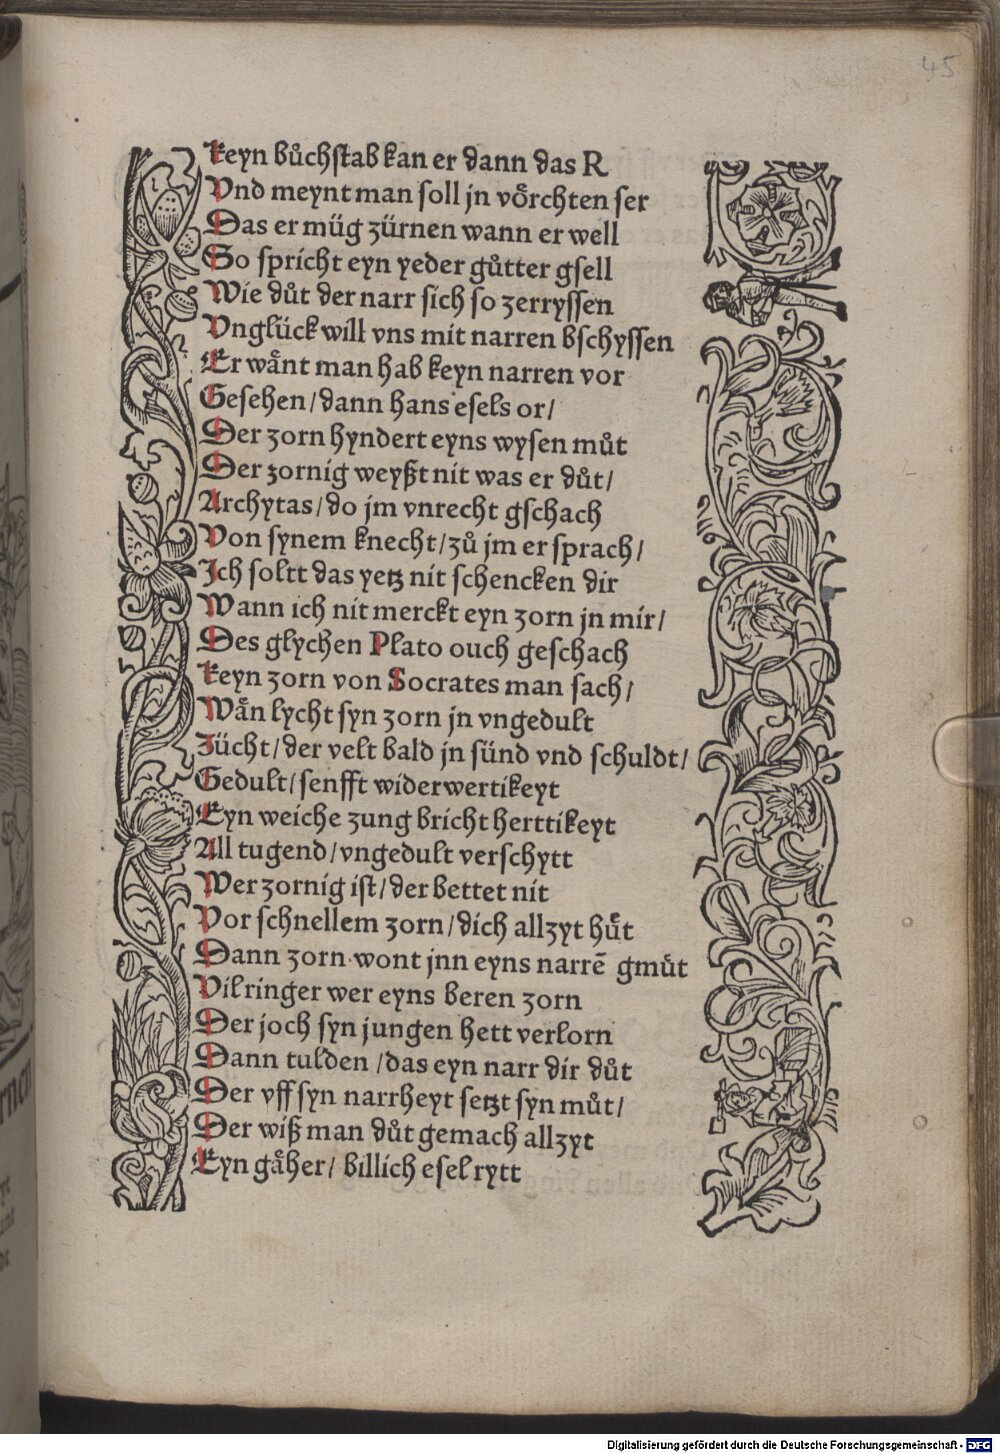 45
Keyn bůchstab kan er dann das R
Vnd meynt man soll jn voͤrchten ser
Das er müg zürnen wann er well
So spricht eyn yeder gůtter gsell
Wie důt der narr sich so zerryssen
Vnglück will vns mit narren bschyssen
Er waͤnt man hab keyn narren vor
Gesehen / dann hans esels or /
Der zorn hyndert eyns wysen můt
Der zornig weyßt nit was er důt /
Archytas / do jm vnrecht gschach
Von synem knecht / zů jm er sprach /
Ich soltt das yetz nit schencken dir
Wann ich nit merckt eyn zorn jn mir /
Des glychen Plato ouch geschach
Keyn zorn von Socrates man sach /
Waͤn lycht syn zorn jn vngedult
Zücht / der velt bald jn sünd vnd schuldt /
Gedult / senfft widerwertikeyt
Eyn weiche zung bricht herttikeyt
All tugend / vngedult verschytt
Wer zornig ist / der bettet nit
Vor schnellem zorn / dich allzyt huͤt
Dann zorn wont jnn eyns narrē gmuͤt
Vil ringer wer eyns beren zorn
Der joch syn jungen hett verlorn
Dann tulden / das eyn narr dir důt
Der vff syn narrheyt setzt syn můt /
Der wiß man důt gemach allzyt
Eyn gaͤher / billich esel rytt
Digitalisierung gefördert durch die Deutsche Forschungsgemeinschaft - DFG